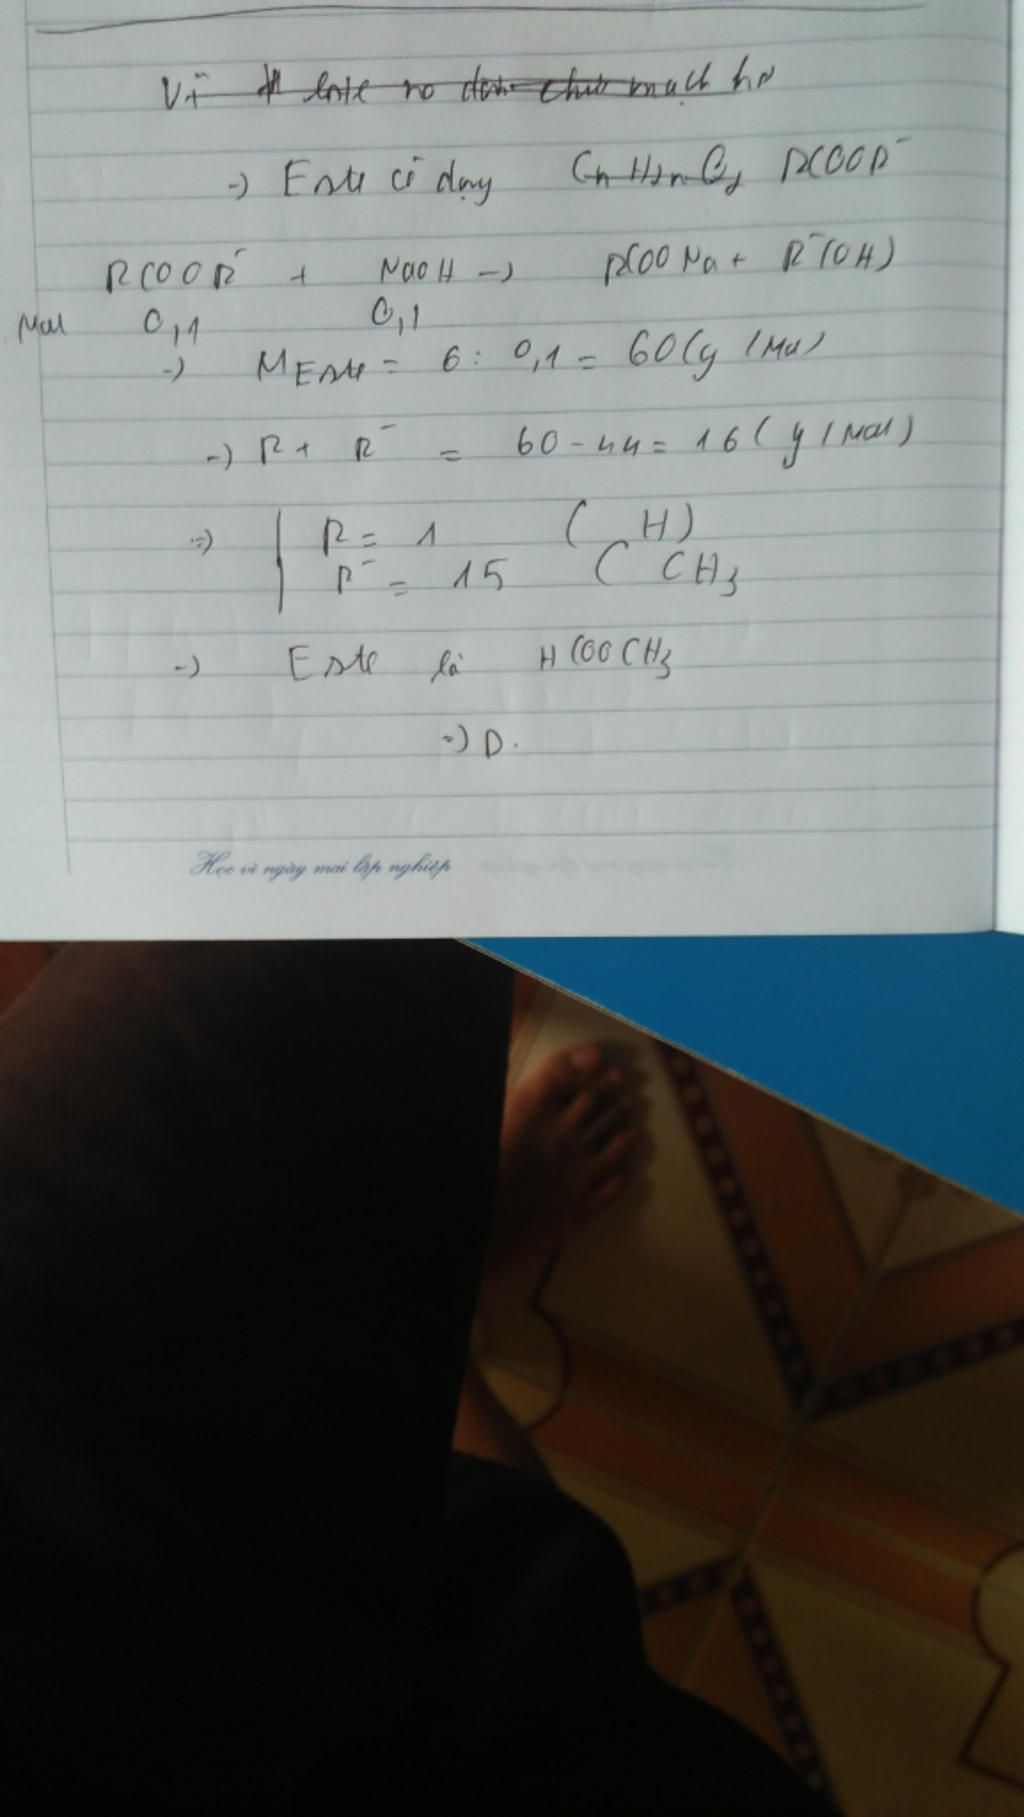 Vì este no đơn chức mạch hở
-) Este có dạng CnH2nO2 RCOOR'
RCOOR' + NaOH -) RCOONa + R'(OH)
Mol 0,1 0,1
-) MEste = 6 : 0,1 = 60 (g/Mol)
-) R + R' = 60 - 44 = 16 (g/Mol)
=) R = 1 (H)
R' = 15 (CH3
-) Este là HCOOCH3
=) D.
Học vì ngày mai lập nghiệp